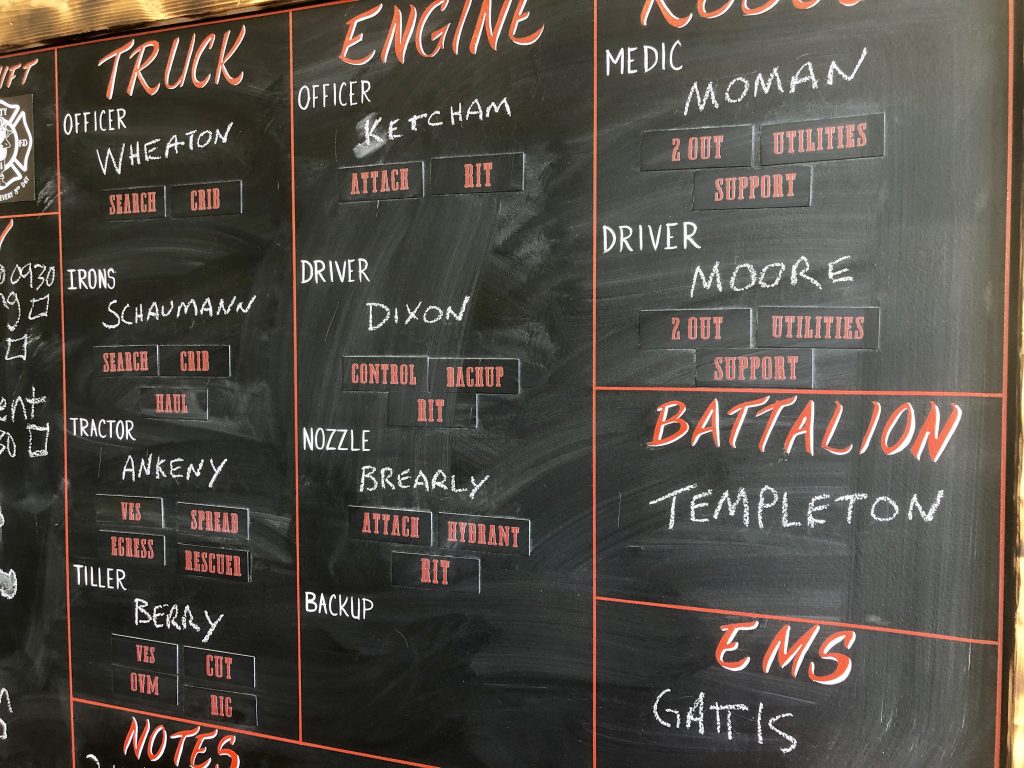 TRUCK
OFFICER
WHEATON
SEARCH CRIB
IRONS
SCHAUMANN
SEARCH CRIB
HAUL
TRACTOR
ANKENY
VES SPREAD
EGRESS RESCUER
TILLER
BERRY
VES CUT
OVM RIG
NOTES
ENGINE
OFFICER
KETCHAM
ATTACK RIT
DRIVER
DIXON
CONTROL BACKUP
RIT
NOZZLE
BREARLY
ATTACK HYDRANT
RIT
BACKUP
MEDIC
MOMAN
2 OUT UTILITIES
SUPPORT
DRIVER
MOORE
2 OUT UTILITIES
SUPPORT
BATTALION
TEMPLETON
EMS
GATTIS
0930